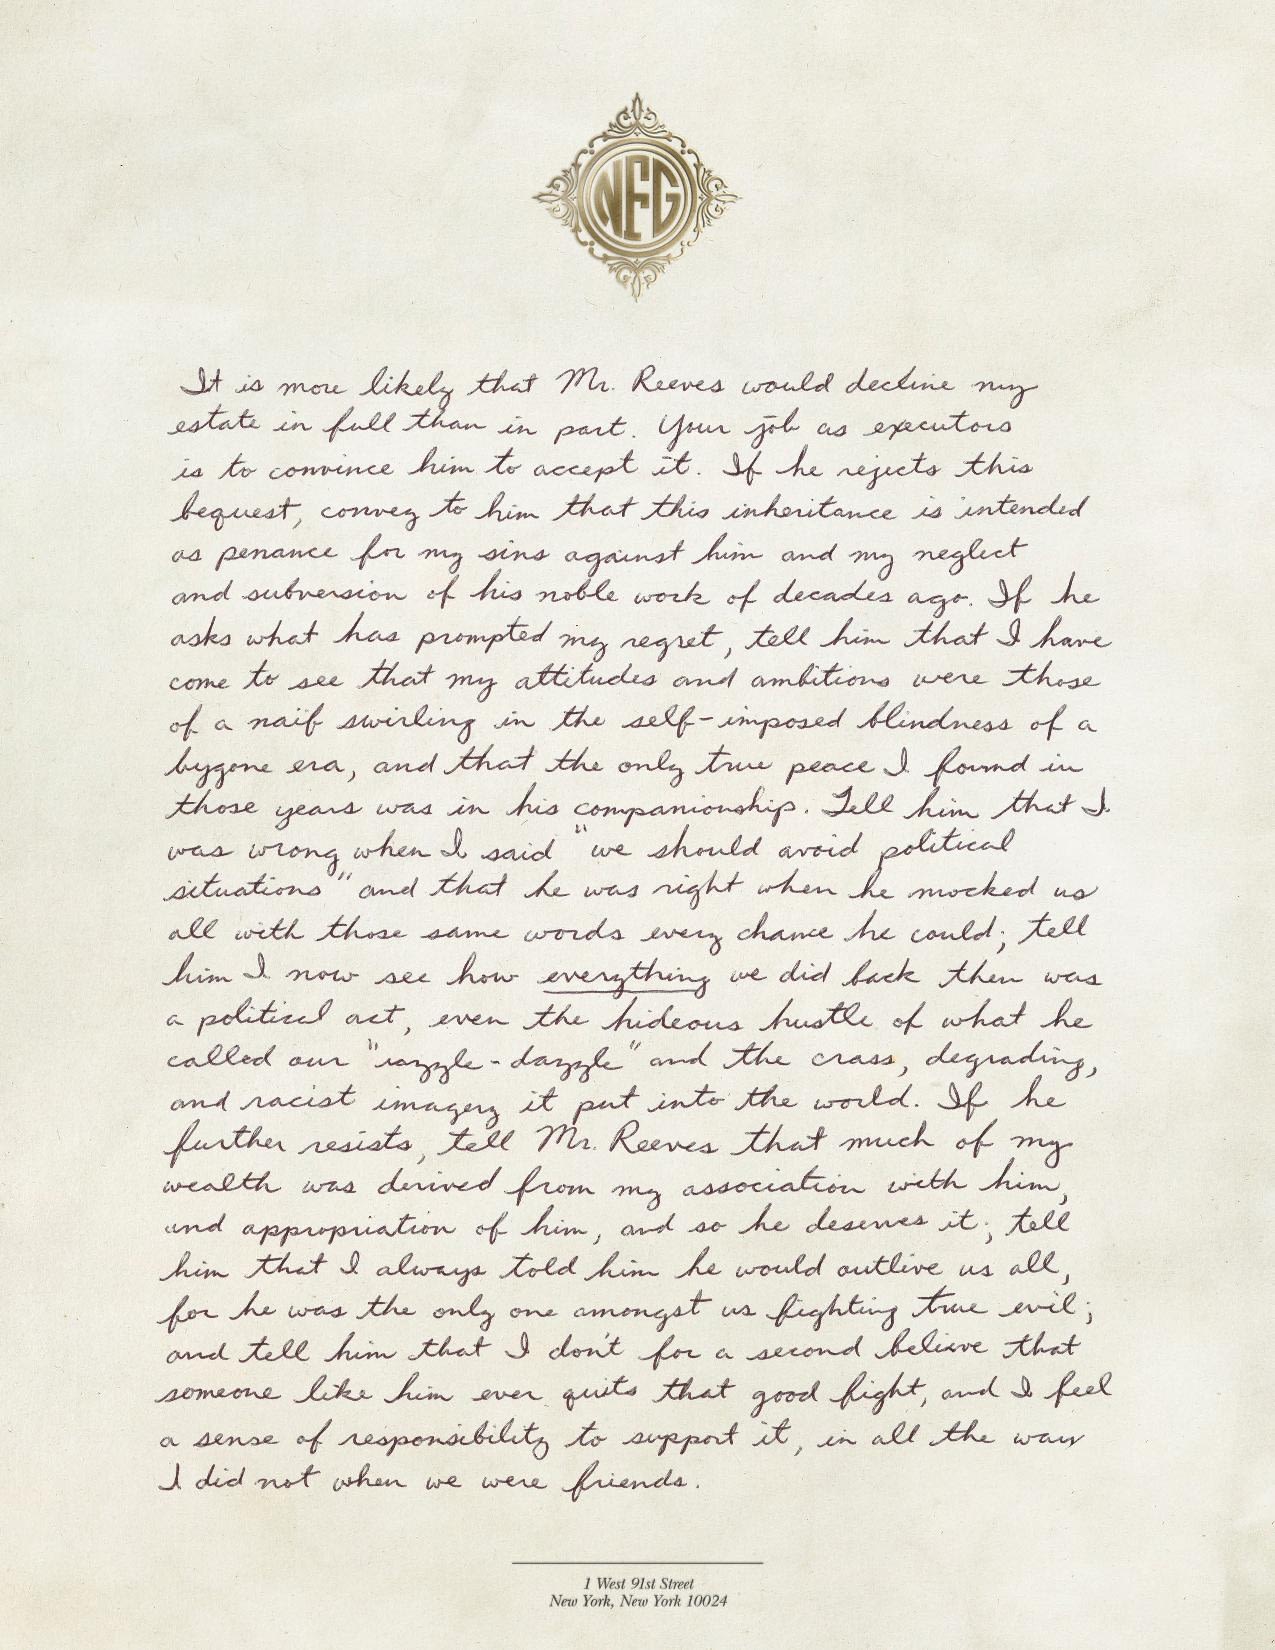 NFG
It is more likely that Mr. Reeves would decline my
estate in full than in part. Your job as executors
is to convince him to accept it. If he rejects this
bequest, convey to him that this inheritance is intended
as penance for my sins against him and my neglect
and subversion of his noble work of decades ago. If he
asks what has prompted my regret, tell him that I have
come to see that my attitudes and ambitions were those
of a naif swirling in the self-imposed blindness of a
bygone era, and that the only true peace I found in
those years was in his companionship. Tell him that I
was wrong when I said "we should avoid political
situations" and that he was right when he mocked us
all with those same words every chance he could; tell
him I now see how everything we did back then was
a political act, even the hideous hustle of what he
called our "razzle-dazzle" and the crass, degrading,
and racist imagery it put into the world. If he
further resists, tell Mr. Reeves that much of my
wealth was derived from my association with him,
and appropriation of him, and so he deserves it; tell
him that I always told him he would outlive us all,
for he was the only one amongst us fighting true evil;
and tell him that I don't for a second believe that
someone like him ever quits that good fight, and I feel
a sense of responsibility to support it, in all the ways
I did not when we were friends.
1 West 91st Street
New York, New York 10024